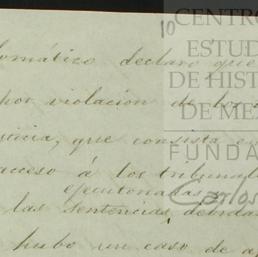 10
CENTRO
ESTUD
DE HIST
DE ME
FUNDA
Carlos
lomático declaró que
por violacion de
usticia, que consista e
acceso á los tribunal
ejecutoriadas
las sentencias, debidas
hubo un caso de a